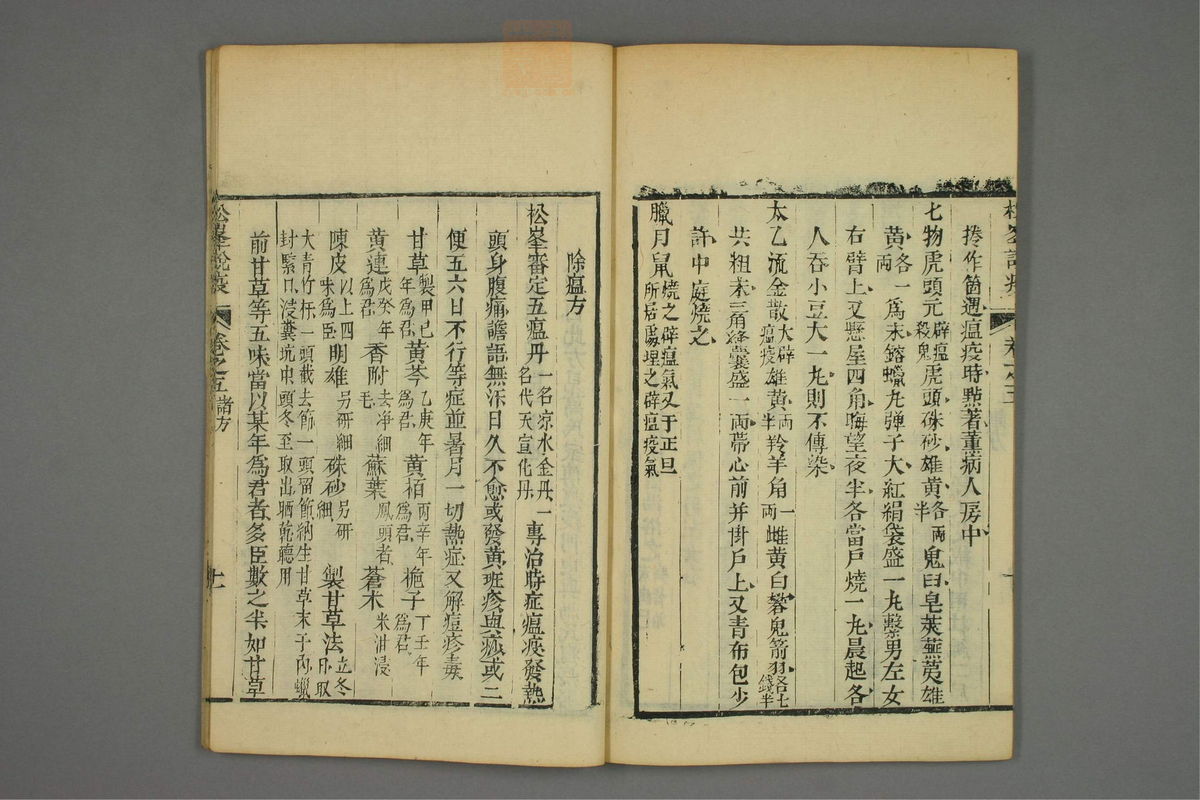 捲作筒遇瘟疫時點著薰病人房中
七物虎頭元辟瘟殺鬼虎頭硃砂雄黃各兩半鬼臼皂莢蕪荑雄
黃各一兩爲末鎔蠟丸彈子大紅絹袋盛一丸繫男左女
右臂上又懸屋四角晦望夜半各當戶燒一丸晨起各
人吞小豆大一丸則不傳染
太乙流金散大辟瘟疫雄黃兩半羚羊角一兩雌黃白礬鬼箭羽各七錢半
共粗末三角絳囊盛一兩帶心前并掛戶上又青布包少
許中庭燒之
臘月鼠燒之辟瘟氣又于正旦所居處埋之辟瘟疫氣
松峯說疫
卷之五
除瘟方
松峯審定五瘟丹一名凉水金丹一名代天宣化丹專治時症瘟疫發熱
頭身腹痛譫語無汗日久不愈或發黃班疹與痧或二
便五六日不行等症並暑月一切熱症又解痘疹毒
甘草製甲己年爲君黃芩乙庚年爲君黃栢丙辛年爲君梔子丁壬年爲君
黃連戊癸年爲君香附去净細毛蘇葉鳳頭者蒼术米泔浸
陳皮以上四味爲臣明雄另研細硃砂另研細製甘草法立冬日取
大青竹杯一頭截去節一頭留節納生甘草末于內蠟
封緊口浸糞坑中頭冬至取出晒乾聽用
前甘草等五味當以某年爲君者多臣數之半如甘草
松峯說疫
卷之五諸方
十